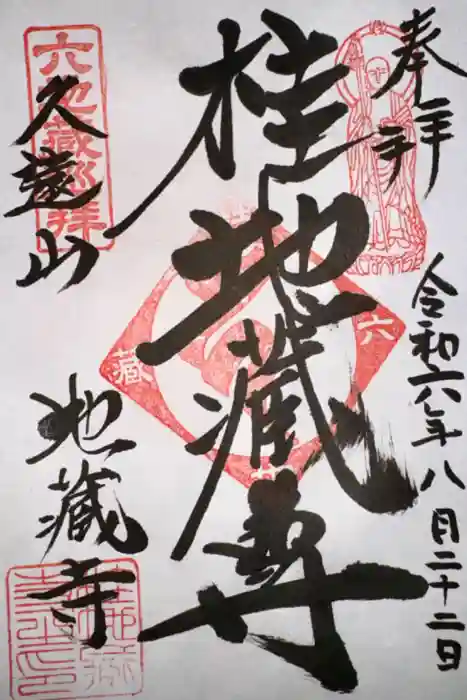 奉拝
令和六年八月二十二日
桂地蔵尊
久遠山
地蔵寺
六地蔵巡拝
六
蔵